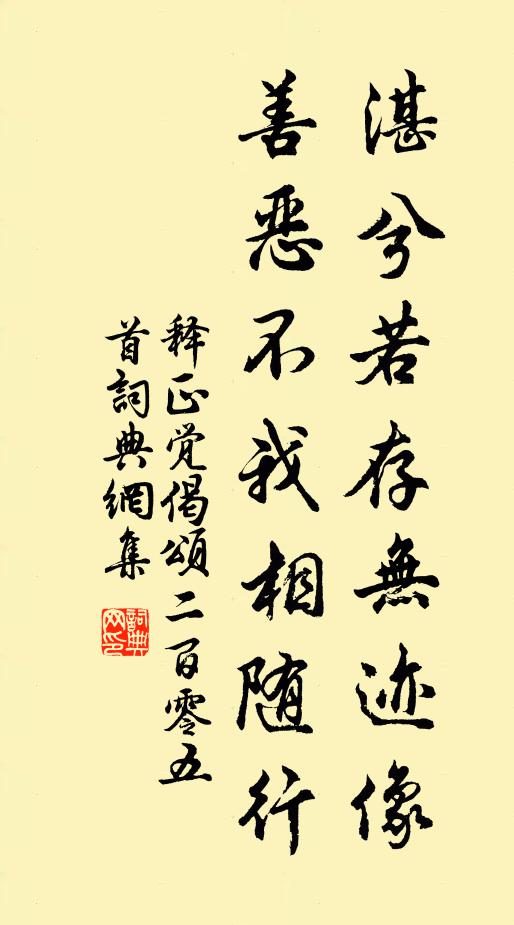 湛兮若存無迹像
善惡不我相随行
释正觉偈頌二百零五
首詞典網集
詞典网印